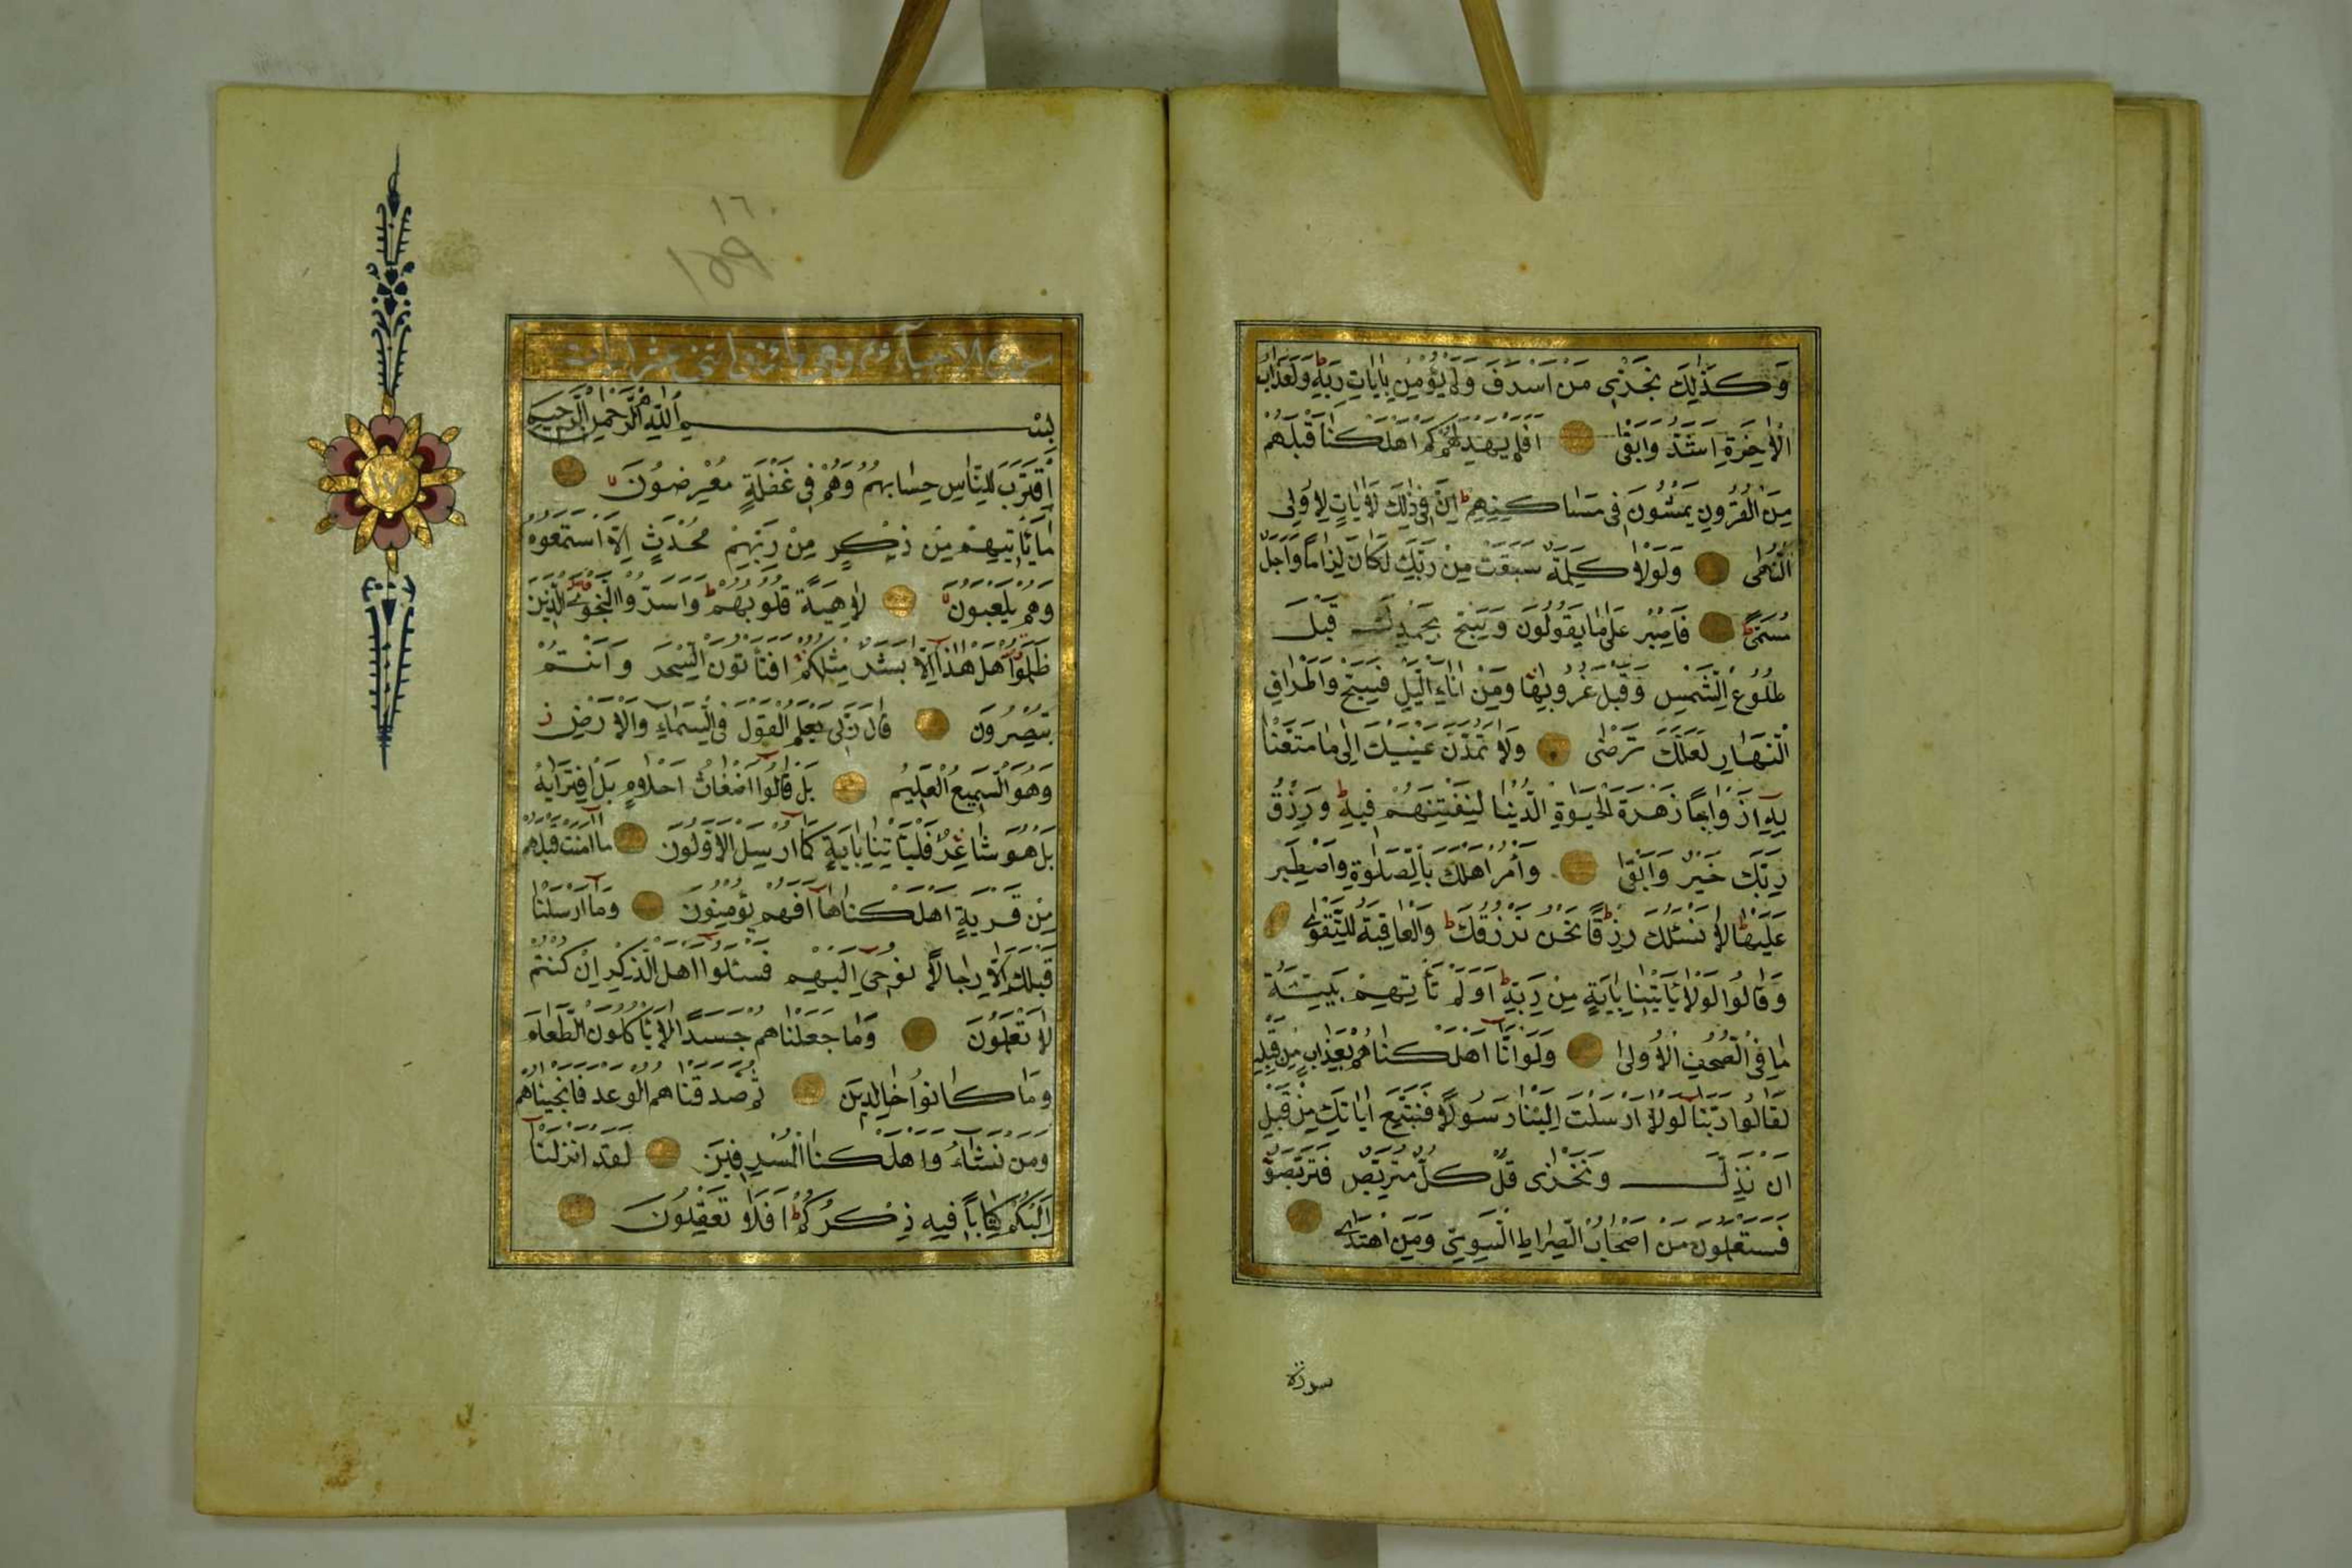 وَكَذٰلِكَ نَجْزٖي مَنْ اَسْرَفَ وَلَمْ يُؤْمِنْ بِاٰيَاتِ رَبِّهٖ ط وَلَعَذَابُ
الْاٰخِرَةِ اَشَدُّ وَاَبْقٰى اَفَلَمْ يَهْدِ لَهُمْ كَمْ اَهْلَكْنَا قَبْلَهُمْ
مِنَ الْقُرُونِ يَمْشُونَ فٖي مَسَاكِنِهِمْ ط اِنَّ فٖي ذٰلِكَ لَاٰيَاتٍ لِاُولِى
النُّهٰى وَلَوْلَا كَلِمَةٌ سَبَقَتْ مِنْ رَبِّكَ لَكَانَ لِزَامًا وَاَجَلٌ
مُسَمًّى ط فَاصْبِرْ عَلٰى مَا يَقُولُونَ وَسَبِّحْ بِحَمْدِ رَبِّكَ قَبْلَ
طُلُوعِ الشَّمْسِ وَقَبْلَ غُرُوبِهَا وَمِنْ اٰنَآئِ الَّيْلِ فَسَبِّحْ وَاَطْرَافَ
النَّهَارِ لَعَلَّكَ تَرْضٰى وَلَا تَمُدَّنَّ عَيْنَيْكَ اِلٰى مَا مَتَّعْنَا
بِهٖٓ اَزْوَاجًا زَهْرَةَ الْحَيٰوةِ الدُّنْيَا لِنَفْتِنَهُمْ فٖيهِ ط وَرِزْقُ
رَبِّكَ خَيْرٌ وَاَبْقٰى وَأْمُرْ اَهْلَكَ بِالصَّلٰوةِ وَاصْطَبِرْ
عَلَيْهَا ط لَا نَسْـَٔلُكَ رِزْقًا ط نَحْنُ نَرْزُقُكَ ط وَالْعَاقِبَةُ لِلتَّقْوٰى
وَقَالُوا لَوْلَا يَأْتٖينَا بِاٰيَةٍ مِنْ رَبِّهٖ ط اَوَلَمْ تَأْتِهِمْ بَيِّنَةُ
مَا فِى الصُّحُفِ الْاُولٰى وَلَوْ اَنَّٓا اَهْلَكْنَاهُمْ بِعَذَابٍ مِنْ قَبْلِهٖ
لَقَالُوا رَبَّنَا لَوْلَٓا اَرْسَلْتَ اِلَيْنَا رَسُولًا فَنَتَّبِعَ اٰيَاتِكَ مِنْ قَبْلِ
اَنْ نَذِلَّ وَنَخْزٰى قُلْ كُلٌّ مُتَرَبِّصٌ فَتَرَبَّصُوا
فَسَتَعْلَمُونَ مَنْ اَصْحَابُ الصِّرَاطِ السَّوِيِّ وَمَنِ اهْتَدٰى
سورة
١٦
١٥٩
سورة الانبياء وهى مائة واثنتى عشر ايات
بِسْمِ اللّٰهِ الرَّحْمٰنِ الرَّحٖيمِ
اِقْتَرَبَ لِلنَّاسِ حِسَابُهُمْ وَهُمْ فٖي غَفْلَةٍ مُعْرِضُونَ
مَا يَأْتٖيهِمْ مِنْ ذِكْرٍ مِنْ رَبِّهِمْ مُحْدَثٍ اِلَّا اسْتَمَعُوهُ
وَهُمْ يَلْعَبُونَ لَاهِيَةً قُلُوبُهُمْ ط وَاَسَرُّوا النَّجْوٰى الَّذٖينَ
ظَلَمُوٓا هَلْ هٰذَٓا اِلَّا بَشَرٌ مِثْلُكُمْ اَفَتَأْتُونَ السِّحْرَ وَاَنْتُمْ
تُبْصِرُونَ قَالَ رَبّٖي يَعْلَمُ الْقَوْلَ فِى السَّمَآءِ وَالْاَرْضِ ز
وَهُوَ السَّمٖيعُ الْعَلٖيمُ بَلْ قَالُوٓا اَضْغَاثُ اَحْلَامٍ بَلِ افْتَرٰيهُ
بَلْ هُوَ شَاعِرٌ فَلْيَأْتِنَا بِاٰيَةٍ كَمَٓا اُرْسِلَ الْاَوَّلُونَ مَٓا اٰمَنَتْ قَبْلَهُمْ
مِنْ قَرْيَةٍ اَهْلَكْنَاهَا اَفَهُمْ يُؤْمِنُونَ وَمَٓا اَرْسَلْنَا
قَبْلَكَ اِلَّا رِجَالًا نُوحٖٓي اِلَيْهِمْ فَسْـَٔلُوٓا اَهْلَ الذِّكْرِ اِنْ كُنْتُمْ
لَا تَعْلَمُونَ وَمَا جَعَلْنَاهُمْ جَسَدًا لَا يَأْكُلُونَ الطَّعَامَ
وَمَا كَانُوا خَالِدٖينَ ثُمَّ صَدَقْنَاهُمُ الْوَعْدَ فَاَنْجَيْنَاهُمْ
وَمَنْ نَشَٓاءُ وَاَهْلَكْنَا الْمُسْرِفٖينَ لَقَدْ اَنْزَلْنَٓا
اِلَيْكُمْ كِتَابًا فٖيهِ ذِكْرُكُمْ ط اَفَلَا تَعْقِلُونَ